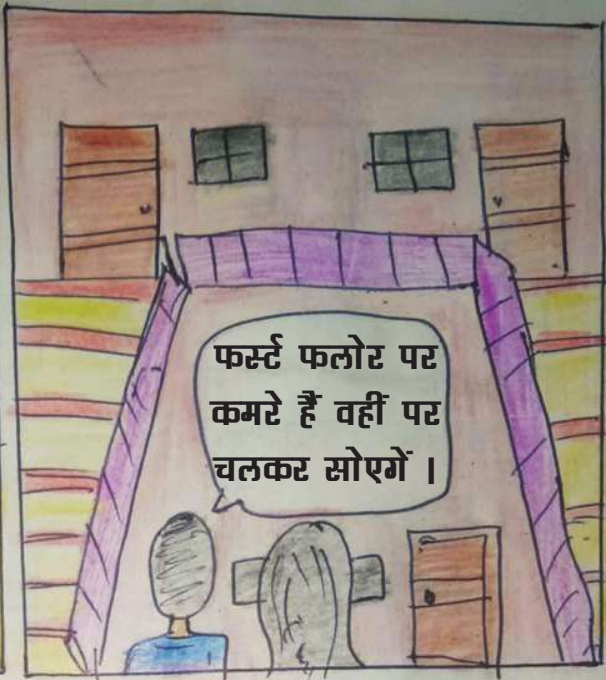 फर्स्ट फलोर पर
कमरे हैं वहीं पर
चलकर सोएगें ।